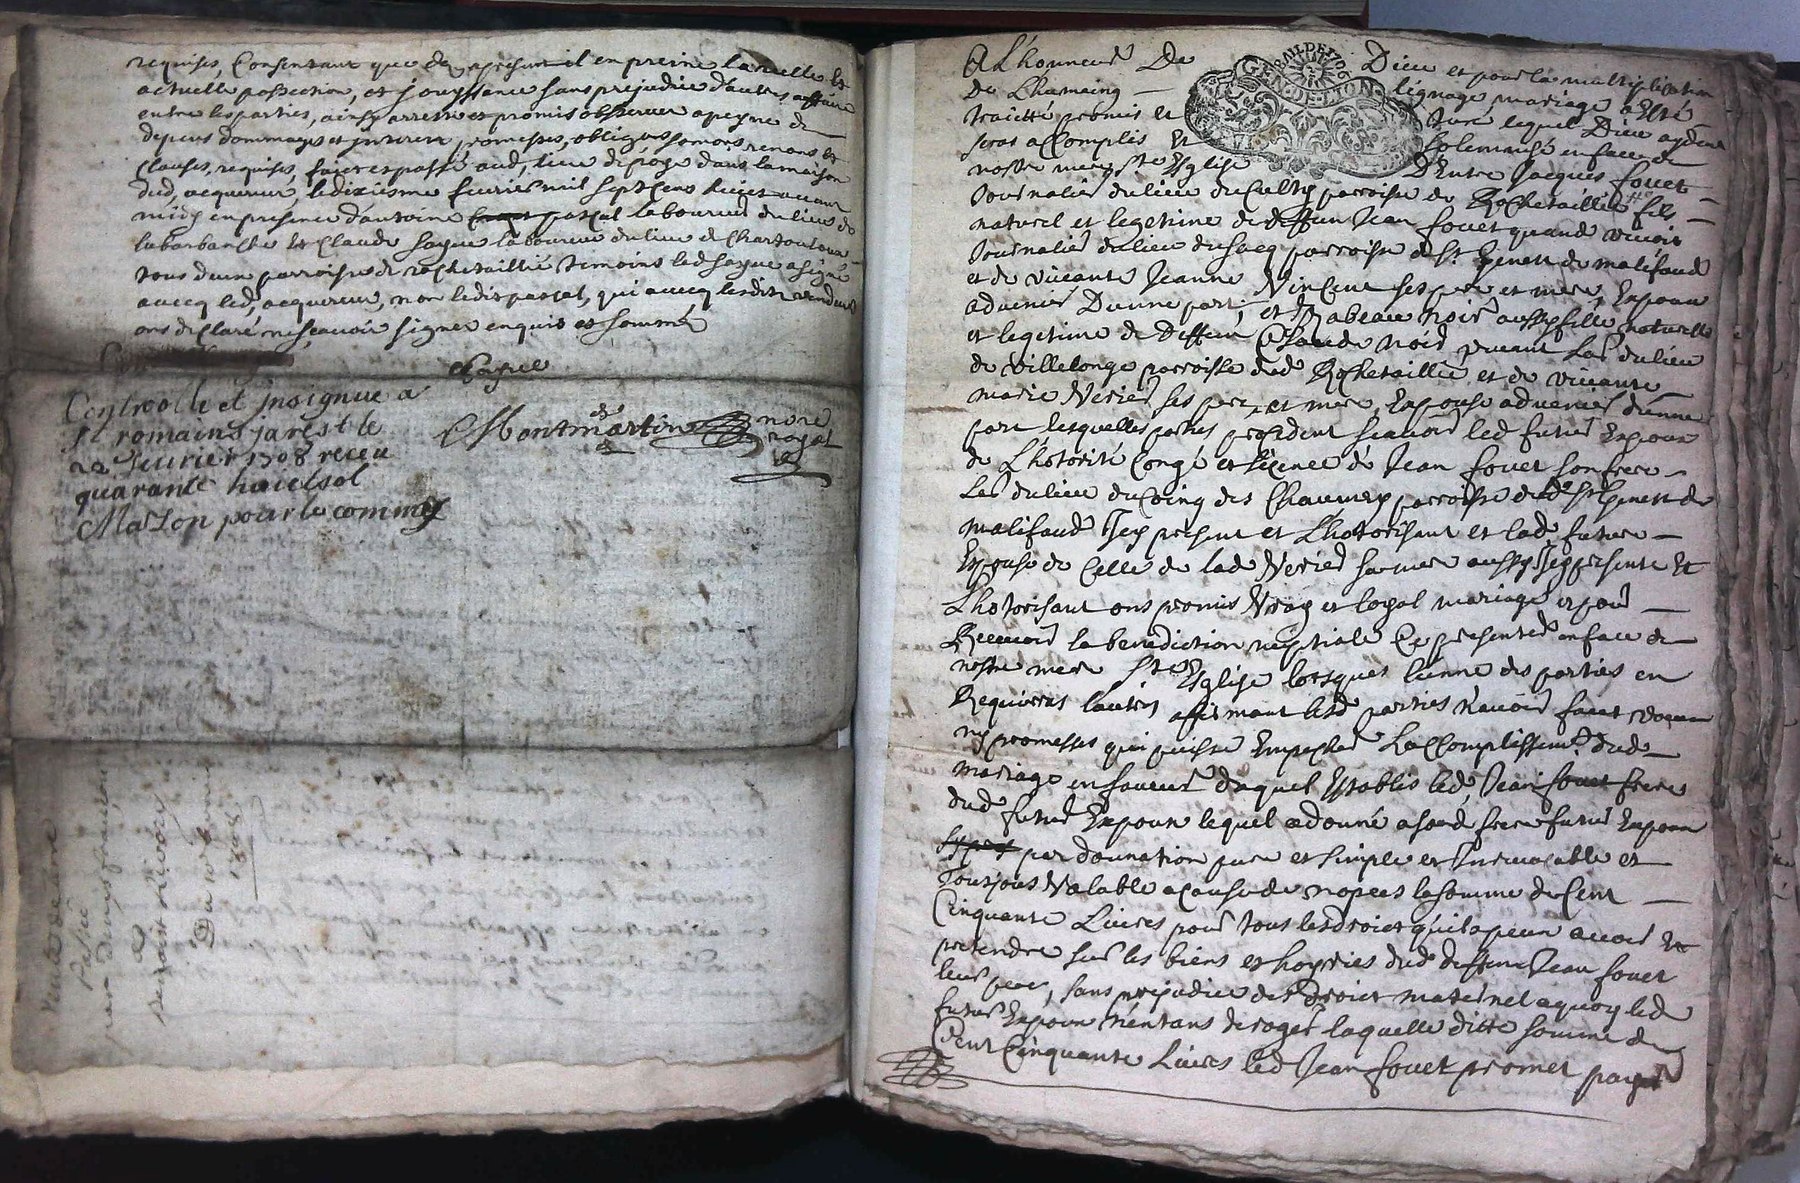 requises, Consentant que des apresent il en preine la reelle et
actuelle possection, et jouyssance sans prejudice dautres affaire
entre les parties, ainsy arresté et promis observer a peyne de
depens dommages et jnterest, promesses, obligaons somons renons et
Clauses, requises, fait et passé aud, lieu de dans la maison
dud, acquereur, le dixieme feuvrier mil sept cens huict avant
midy en presence dantoine pascal laboureur du lieu de
la barbanche et Claude sagne laboureur du lieu de
tous deux parroisse de rochetaillié temoins led sagne a signé
avecq led, acquereur, non ledit pascal, qui avecq lesdits vendeurs
ons declaré ne scavoir signer enquis et sommés
Sagne
Controlle et jnsignué a
st romains jarest le
22 feuvrier 1708 receu
quarante huict sol
Mazon pour le commis
Montmartin nore
royal
Vente de
par
a
Du 10 feuvrier
1708
GEN. DE LYON
A L'honneur De Dieu et pour la multiplication
De Lhumaing lignage mariage a Esté
traicté promis et Dieu aydant
seras accomplis et solemnisé en face de
nostre mere Ste Esglise D'Entre Jacques fouet
Journalier du lieu du Culty parroisse de Rochetaillié fils
naturel et legitime de deffun Jean fouet quand vivoit
Journalier du lieu du sacq parroisse de St Genest de malifaud
et de vivante Jeanne Vincent ses pere et mere, Expoux
advenir D'unne part, et Ysabeau noir aussy fille naturelle
et legitime de Deffun Claude noir vivant Lab du lieu
de villelonge parroisse dud Rochetaillié et de vivante
marie Verier ses pere et mere, Expouse advenir d'unne
part lesquelles parties procedent scavoir led futur Expoux
de L'hotorité Congé et licence de Jean fouet son frere
Lab du lieu du Coing des Chaumey parroisse dud St Genest de
malifaud Jcy present et L'hotorisant et lad, future
Expouse de Celle de lad Verier sa mere aussy Jcy presente et
L'hotorisant ons promis Vray et loyal mariage et pour
Recevoir la benediction nuptiale Ce presenter en face de
nostre mere Ste Esglise lorsques l'unne des parties en
Requerras l'autres affirmant lesd parties n'avoir faict
ny promesses qui puisse Empecher L'accomplissemt. dud
mariage en faveur daquel Establis led, Jean fouet frere
dud futur Expoux lequel a donné a sond frere futur Expoux
par donnation pure et simple et Jrrevocable et
Tousjours Valable a cause de nopces la somme de Cent
Cinquante Livres pour tous les droict qu'il a peux avoir et
pretendre sur les biens et hoyries dud deffun Jean fouet
leur pere, sans prejudice des droict maternel aquoy led
futur Expoux n'entans deroger laquelle ditte somme de
Cent Cinquante Livres led Jean fouet promet payer